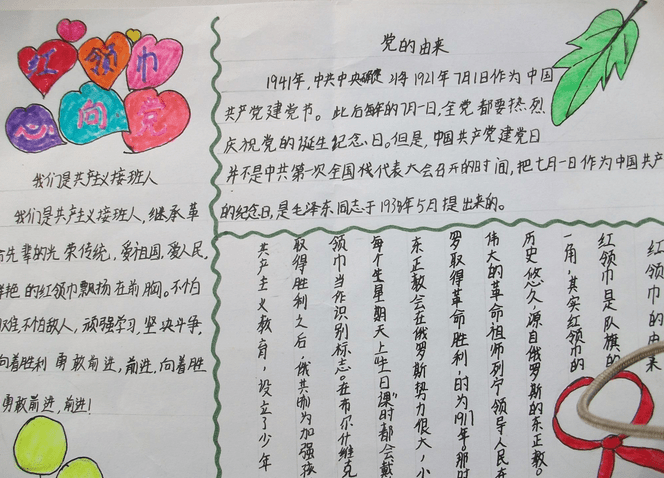 红领巾
心向党
我们是共产主义接班人
我们是共产主义接班人,继承革
先辈的光荣传统,爱祖国,爱人民,
艳的红领巾飘扬在前胸。不怕
难,不怕敌人,顽强学习,坚决斗争,
向着胜利 勇敢前进,前进,向着胜
勇敢前进,前进!
党的由来
1941年,中共中央确定将1921年7月1日作为中国
共产党建党节。此后每年的7月一日,全党都要热烈
庆祝党的诞生纪念日。但是,中国共产党建党日
并不是中共第一次全国代表大会召开的时间,把七月一日作为中国共产
的纪念日,是毛泽东同志于1938年5月提出来的。
红领巾的由来
红领巾是队旗的
一角,其实红领巾的
历史悠久 源自俄罗斯的东正教。
伟大的革命祖师列宁领导人民在
罗取得革命胜利,时为1917年。那时
东正教会在俄罗斯势力很大,小
每个生星期天上"生日课"时都会戴
领巾当作识别标志。在布尔什维克
取得胜利之后,俄共(布)为加强孩
共产主义教育,设立了少年